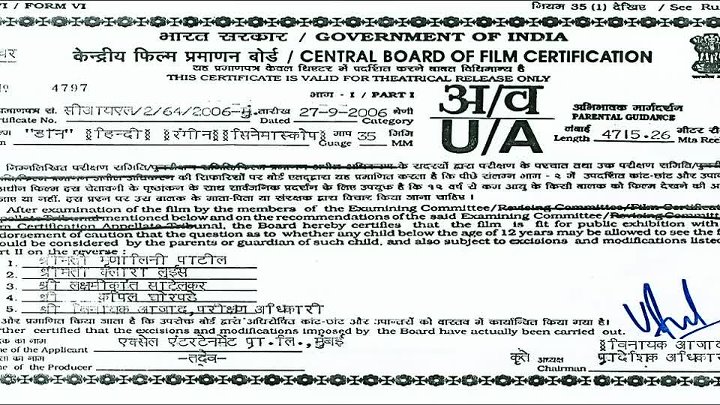 VI / FORM VI
नियम 35 (1) देखिए / See Ru
भारत सरकार / GOVERNMENT OF INDIA
केन्द्रीय फिल्म प्रमाणन बोर्ड / CENTRAL BOARD OF FILM CERTIFICATION
यह प्रमाणपत्र केवल थिएटर में प्रदर्शित करने बाबत विधिमान्य है
THIS CERTIFICATE IS VALID FOR THEATRICAL RELEASE ONLY
4797
भाग - I / PART I
प्रमाणपत्र सं. सीआयएल/2/64/2006-मुं. तारीख 27-9-2006 श्रेणी
Certificate No. Dated Category
अ/व
U/A
अभिभावक मार्गदर्शन
PARENTAL GUIDANCE
"डॉन" हिन्दी रंगीन सिनेमास्कोप माप 35 मिमि
Guage MM
लंबाई 4715.26 मीटर री
Length Mtrs Reel
निम्नलिखित परीक्षण समिति/ के सदस्यों द्वारा परीक्षण के पश्चात तथा उक्त परीक्षण समिति/
की सिफारिशों पर बोर्ड एतद्द्वारा यह प्रमाणित करता है कि पीछे संलग्न भाग - २ में उपदर्शित कांट-छांट और उपां
अधीन फिल्म इस चेतावनी के पृष्ठांकन के साथ सार्वजनिक प्रदर्शन के लिए उपयुक्त है कि १२ वर्ष से कम आयु के किसी बालक को फिल्म देखने की अ
जाए या नहीं. इस प्रश्न पर उस बालक के माता-पिता या संरक्षक द्वारा विचार किया जाना चाहिए ।
After examination of the film by the members of the Examining Committee/Revising Committee/Film Certific
Tribunal mentioned below and on the recommendations of the said Examining Committee/Revising Committ
m Certification Appellate Tribunal, the Board hereby certifies that the film is fit for public exhibition with
dorsement of caution that the question as to whether any child below the age of 12 years may be allowed to see the f
ould be considered by the parents or guardian of such child, and also subject to excisions and modifications listed
art II on the reverse :
1. श्रीमती मृणालिनी पाटील
2. श्रीमती क्लारा लुईस
3. श्री लक्ष्मीकांत साटेलकर
4. श्री कपिल घोरपडे
5. श्री विनायक आजाद, परीक्षण अधिकारी
और प्रमाणित किया जाता है कि उपरोक्त बोर्ड द्वारा अधिरोपित कांट-छांट और उपान्तरों को वास्तव में कार्यान्वित किया गया है।
rther certified that the excisions and modifications imposed by the Board have actually been carried out.
दक का नाम एक्सेल एंटरटेनमेंट प्रा.लि., मुंबई
e of the Applicant
ता का नाम -तदैव-
e of the Producer
विनायक आजाद
कृते अध्यक्ष प्रादेशिक अधिका
Chairman